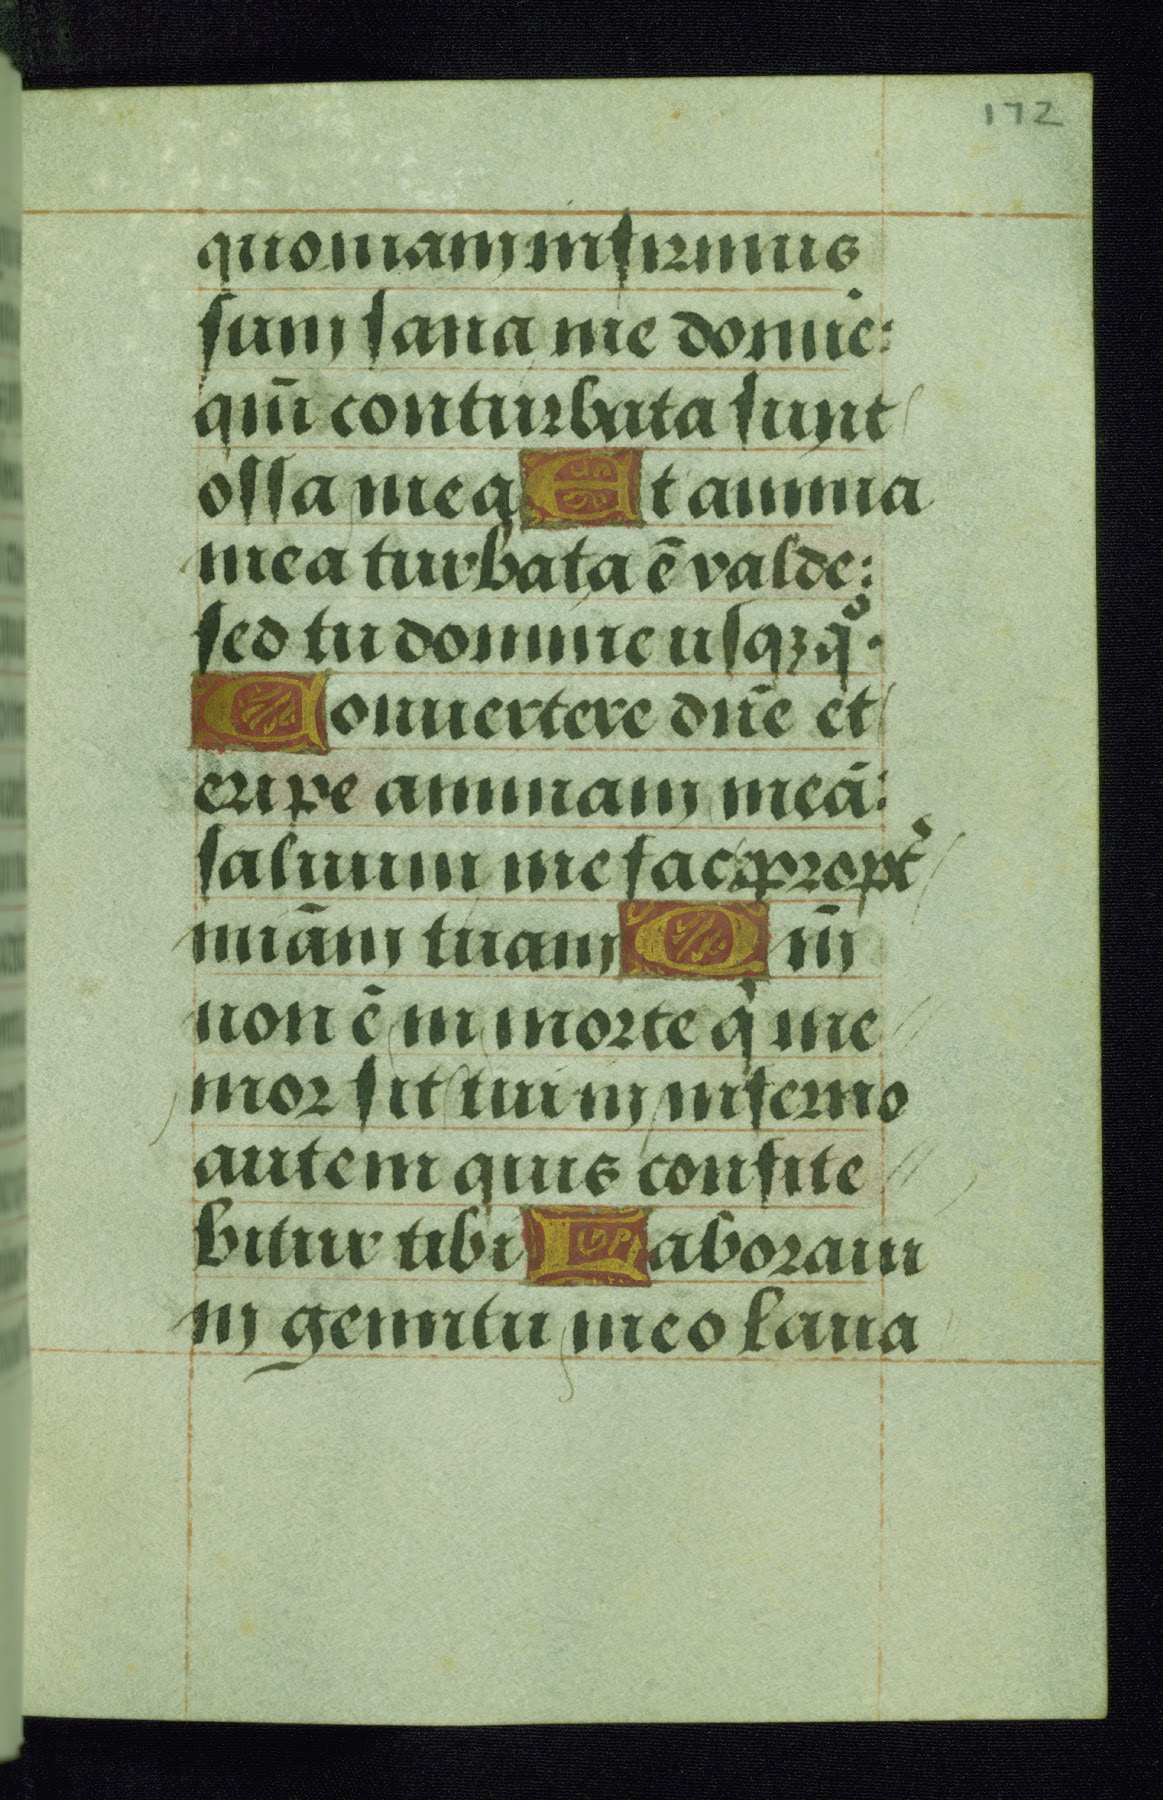 172
quoniam infirmus
sum sana me domie:
qm̄ conturbata sunt
ossa mea Et anima
mea turbata ē valde:
sed tu domine usqꝫqº.
Convertere dn̄e et
eripe animam meā:
saluum me fac propt̉
miām tuam Qm̄
non ē in morte qͥ me
mor sit tui in inferno
autem quis confite
bitur tibi Laboraui
in gemitu meo laua